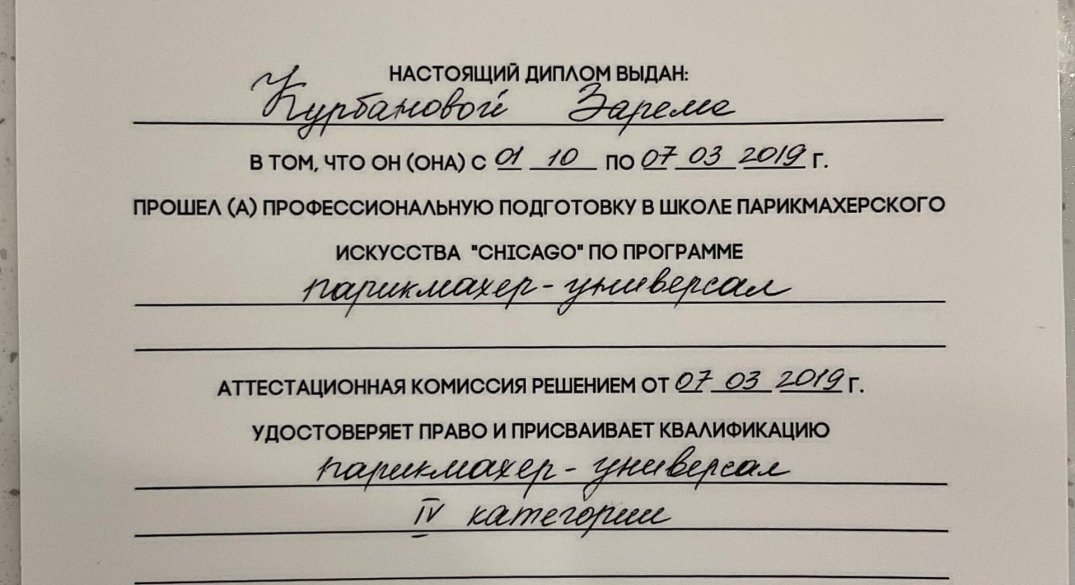 НАСТОЯЩИЙ ДИПЛОМ ВЫДАН:
Курбановой Зареме
В ТОМ, ЧТО ОН (ОНА) С 01 10 ПО 07 03 2019 Г.
ПРОШЕЛ (А) ПРОФЕССИОНАЛЬНУЮ ПОДГОТОВКУ В ШКОЛЕ ПАРИКМАХЕРСКОГО
ИСКУССТВА "CHICAGO" ПО ПРОГРАММЕ
парикмахер-универсал
АТТЕСТАЦИОННАЯ КОМИССИЯ РЕШЕНИЕМ ОТ 07 03 2019 Г.
УДОСТОВЕРЯЕТ ПРАВО И ПРИСВАИВАЕТ КВАЛИФИКАЦИЮ
парикмахер-универсал
IV категории